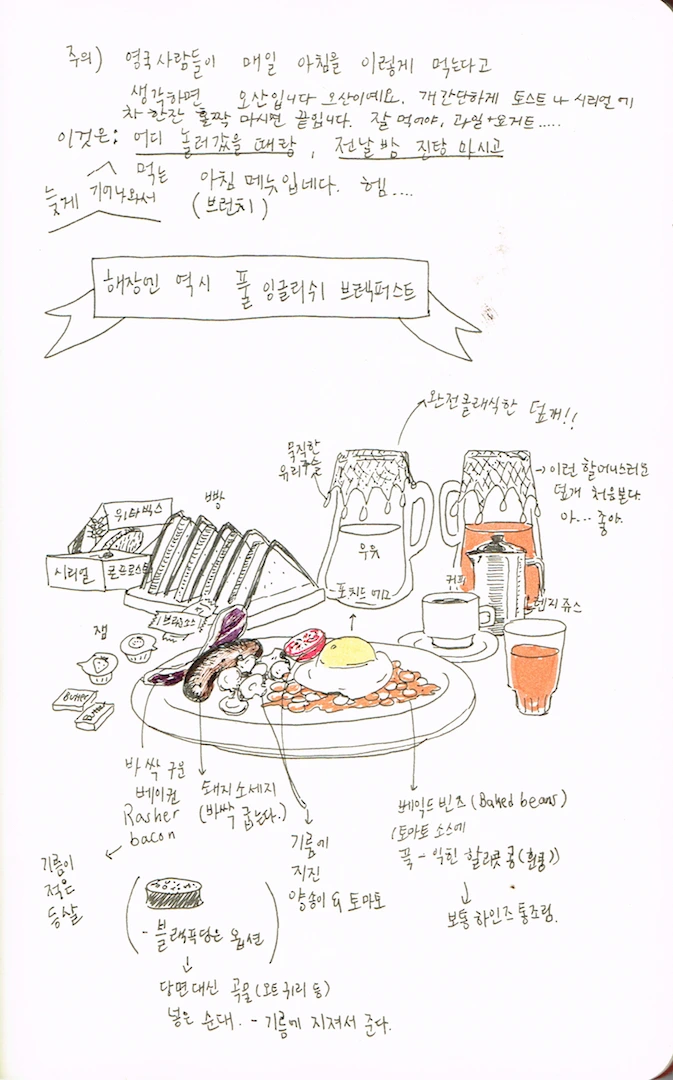 주의) 영국사람들이 매일 아침을 이렇게 먹는다고
생각하면 오산입니다 오산이예요. 걔 간단하게 토스트나 시리얼에
차 한잔 홀짝 마시면 끝입니다. 잘 먹어야, 과일+요거트.....
이것은: 어디 놀러갔을 때랑, 전날 밤 진탕 마시고
늦게 기어나와서 먹는 아침 메뉴입네다. 헴....
(브런치)
해장엔 역시 풀 잉글리쉬 브렉퍼스트
완전클래식한 덮개!!
묵직한
유리구슬
이런 할머니스러운
덮개 처음본다
아... 좋아.
빵
위타빅스
시리얼
콘프로스트
브라운소스
우유
포치드 에그
커피
오렌지 쥬스
잼
Butter
Butter
바싹 구운
베이컨
Rasher
bacon
기름이
적은
등살
돼지 소세지
(바싹 굽는다.)
기름에
지진
양송이 & 토마토
베이크드 빈즈 (Baked beans)
(토마토 소스에
푹- 익힌 할리곳 콩(흰콩))
보통 하인즈 통조림.
- 블랙푸딩은 옵션
당면대신 곡물(오트 귀리 등)
넣은 순대. - 기름에 지져서 준다.